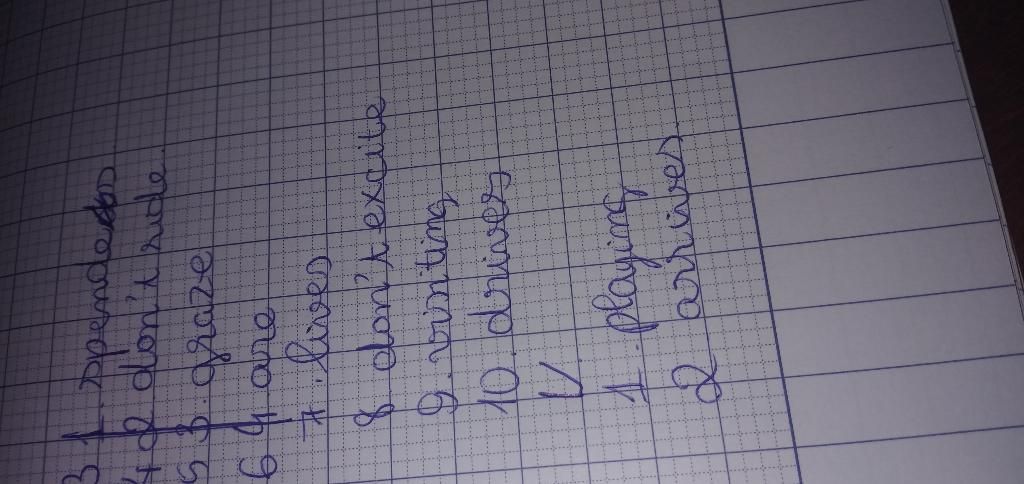 3 1. spend
4 2 don't ride
5 3. graze
6 4 are
7. lives
8 don't excite
9. writing
10. drives
V
1. playing
2 arrives